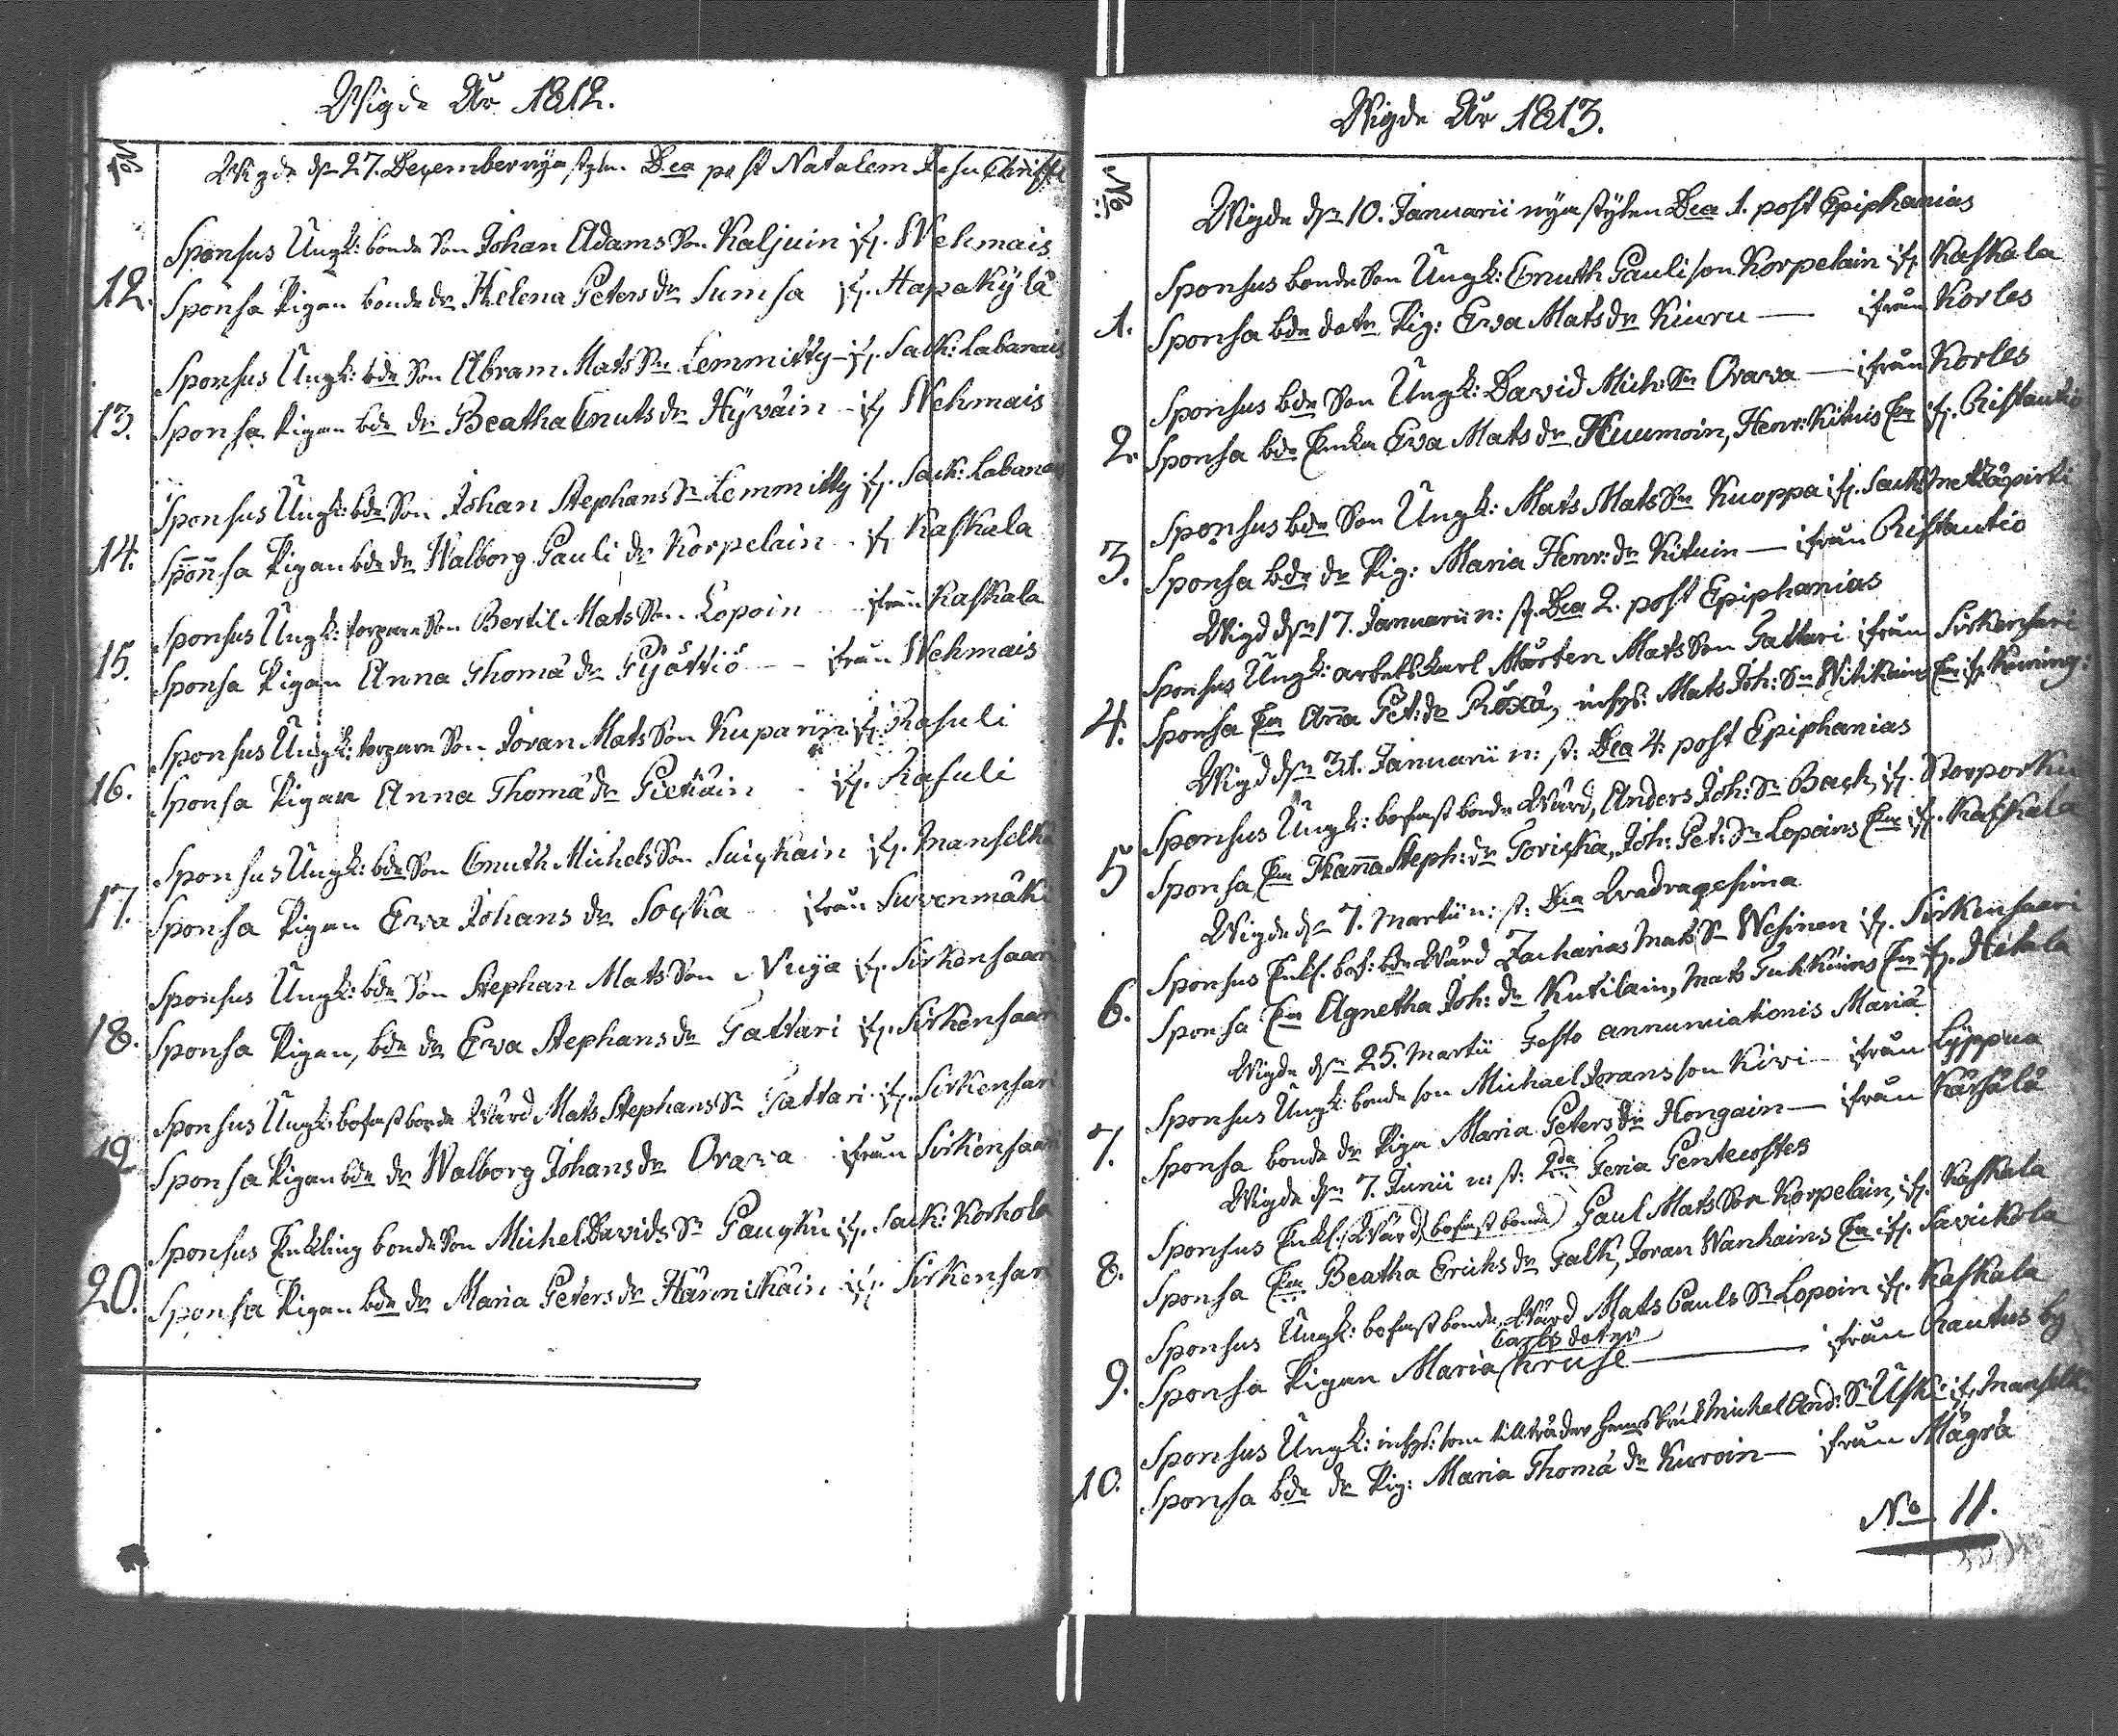 Wigde År 1812.
No
Wigde d. 27. December nya styln. Dca post Natalem Jesu Christi
Sponsus Ungk: bonde Son Johan Adams Son Kaljuin ifr. Wehmais
12. Sponsa Pigan bonde dr Helena Peters dr Sumsa ifr. Hapakylä
Sponsus Ungk: bde Son Abram Mats Sn Lemmitty ifr. Sack: Labanais
13. Sponsa Pigan bde dr Beatha Cnuts dr Hyväin ifr Wehmais
Sponsus Ungk: bde Son Johan Stephans Sn Lemmitty ifr. Sack: Labana
14. Sponsa Pigan bde dr Walborg Pauli dr Korpelain ifr Kaskala
Sponsus Ungk: torpare Son Bertil Mats Son Lopoin ifrån Kaskala
15. Sponsa Pigan Anna Thomæ dr Pyöttiö ifrån Wehmais
Sponsus Ungk: torpare Son Jöran Mats Son Kuparin ifr. Rasuli
16. Sponsa Pigan Anna Thomæ dr Pietiäin ifr. Rasuli
Sponsus Ungk: bde Son Cnuth Michels Son Suickain ifr. Manselkä
17. Sponsa Pigan Ewa Johans dr Socka ifrån Suvenmäki
Sponsus Ungk: bde Son Stephan Mats Son Nuija ifr. Sirkensaari
18. Sponsa Pigan, bde dr Ewa Stephans dr Pattari ifr. Sirkensaari
Sponsus Ungk: bofast bonde Wärd Mats Stephans Sn Pattari ifr. Sirkensar
19 Sponsa Pigan bde dr Walborg Johans dr Orawa ifrån Sirkensaar
Sponsus Enkling bonde Son Michel Davids Sn Paucku ifr. Sack: Korhola
20. Sponsa Pigan bde dr Maria Peters dr Hännikäin ifr. Sirkensar
Wigde År 1813.
No:
Wigde d. 10. Januarii nya stylen Dca 1. post Epiphanias
Sponsus bonde Son Ungk: Cnuth Pauli son Korpelain ifr Kaskala
1. Sponsa bde dotr Pig: Ewa Mats dr Kiuru — ifrån Korles
Sponsus bde Son Ungk: David Mich: Sn Orawa — ifrån Korles
2. Sponsa bde Enka Eva Mats dr Huumoin, Henr: Kituis En ifr. Ristautio
Sponsus bde Son Ungk: Mats Mats Sn Kuoppa ifr. Sack: Metzäpirti
3. Sponsa bde dr Pig: Maria Henr: dr Kituin — ifrån Ristautio
Wigd d. 17. Januarii n: st. Dca 2. post Epiphanias
Sponsus Ungk: arbets karl Mårten Mats Son Pattari ifrån Sirkensari
4. Sponsa En Anna Pet: dr Röxä, inhys: Mats Joh: Sn Witikains En ifr. Kuning:
Wigd d. 31. Januarii n: st: Dca 4. post Epiphanias
Sponsus Ungk: bofast bonde Wärd, Anders Joh: Sn Back, ifr. Storporku
5 Sponsa En Hanna Steph: dr Toricka, Joh: Pet: Sn Lopoins En ifr. Kaskala
Wigde d. 7. Martii n: st: Dca Qvadragesima
Sponsus Enkl. bof: bde Wärd Zacharias Mats Sn Wesinen ifr. Sirkensaari
6. Sponsa En Agnetha Joh: dr Kutilain, Mats Tukkuins En ifr. Hetula
Wigde d. 25. Martii Festo annunciationis Mariæ
Sponsus Ungk: bonde son Michael Jörans son Kivi — ifrån Lyppua
7. Sponsa bonde dr Piga Maria Peters dr Hongain — ifrån Kärsälä
Wigde d. 7. Junii n: st: 2da Feria Pentecostes
Sponsus Enkl. (Wärd bofast bonde) Paul Mats Son Korpelain, ifr. Kaskala
8. Sponsa En Beatha Erichs dr Falk, Jöran Wanhains En ifr. Savickola
Sponsus Ungk: bofast bonde Wärd Mats Pauls Sn Lopoin ifr. Kaskala
Carls doter
9. Sponsa Pigan Maria Kruse — ifrån Rautus by
Sponsus Ungk: inhys: som tillträder hemsbruk Michel And: Sn Uski ifr. Manselk:
10. Sponsa bde dr Pig: Maria Thomæ dr Kuroin — ifrån Mägrä
No 11.